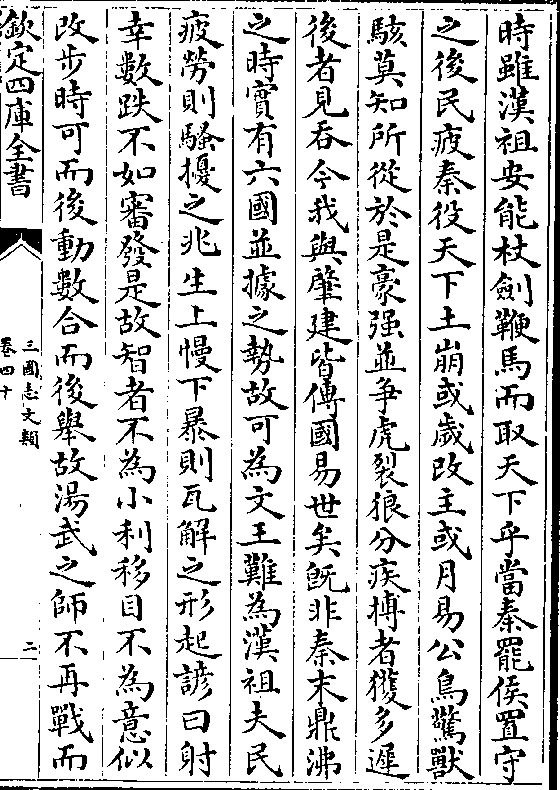 時雖漢祖安能杖劍鞭馬而取天下乎當秦罷侯置守
之後民疲秦役天下土崩或歲改主或月易公鳥驚獸
駭莫知所從於是豪强並爭虎裂狼分疾搏者獲多遲
後者見吞今我與肇建皆傳國易世矣既非秦末鼎沸
之時實有六國並據之勢故可為文王難為漢祖夫民
疲勞則騷擾之兆生上慢下暴則瓦解之形起諺曰射
幸數跌不如審發是故智者不為小利移目不為意似
改步時可而後動數合而後舉故湯武之師不再戰而
欽定四庫全書
三國志文類
卷四十
二